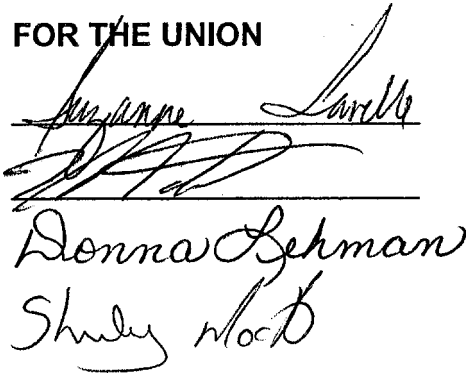 FOR THE UNION
Suzanne Lavelle
Donna Lehman
Shirley